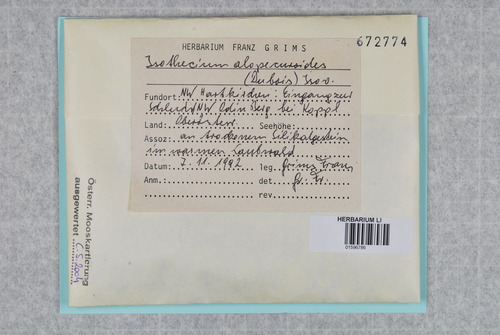 672774
HERBARIUM FRANZ GRIMS
Isothecium alopecuroides
(Dubois) Isov.
Fundort: NW Hartkirchen: Eingang zur
NW bei
Land: Oberösterr. Seehöhe:
Assoz: an trockenem Silikatgestein
im warmen Laubwald
Datum: 2.11.1992 leg. Grims Franz
Anm. det. Gr. Fr.
rev.
HERBARIUM LI
Österr. Mooskartierung
ausgewertet C.S. 2004